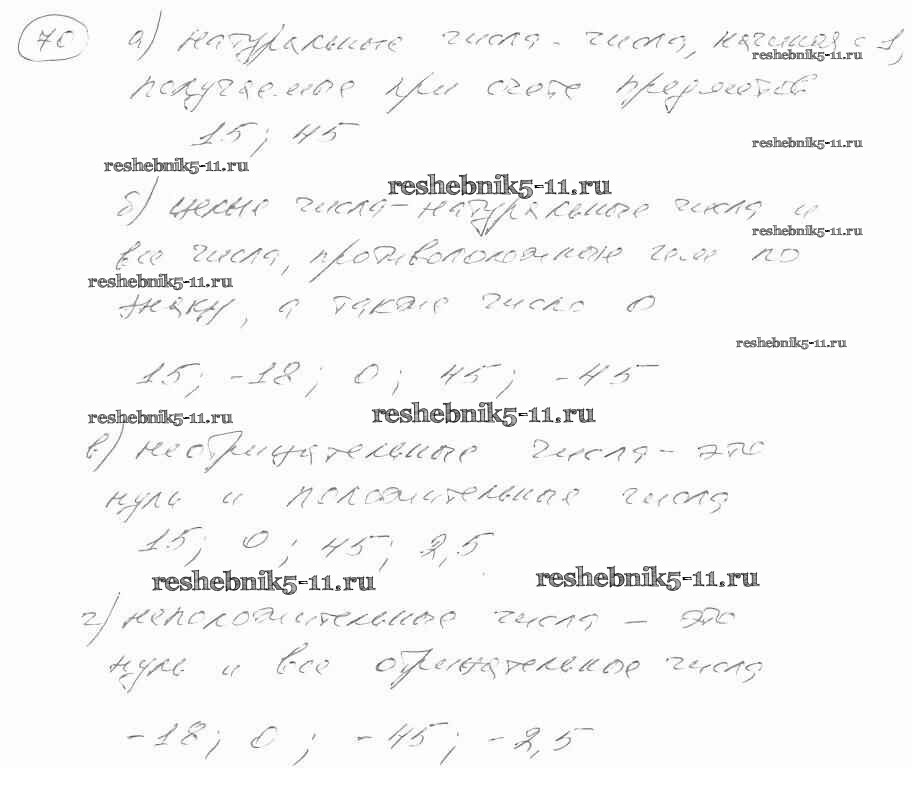 70 а) натуральные числа - числа, начиная с 1,
reshebnik5-11.ru
получаемые при счете предметов
15; 45
reshebnik5-11.ru
reshebnik5-11.ru
reshebnik5-11.ru
б) целые числа - натуральные числа и
reshebnik5-11.ru
все числа, противоположные им по
reshebnik5-11.ru
знаку, а также число 0
reshebnik5-11.ru
15; -18; 0; 45; -45
reshebnik5-11.ru
reshebnik5-11.ru
в) неотрицательные числа - это
нуль и положительные числа
15; 0; 45; 2,5
reshebnik5-11.ru
reshebnik5-11.ru
г) неположительные числа - это
нуль и все отрицательные числа
-18; 0; -45; -2,5